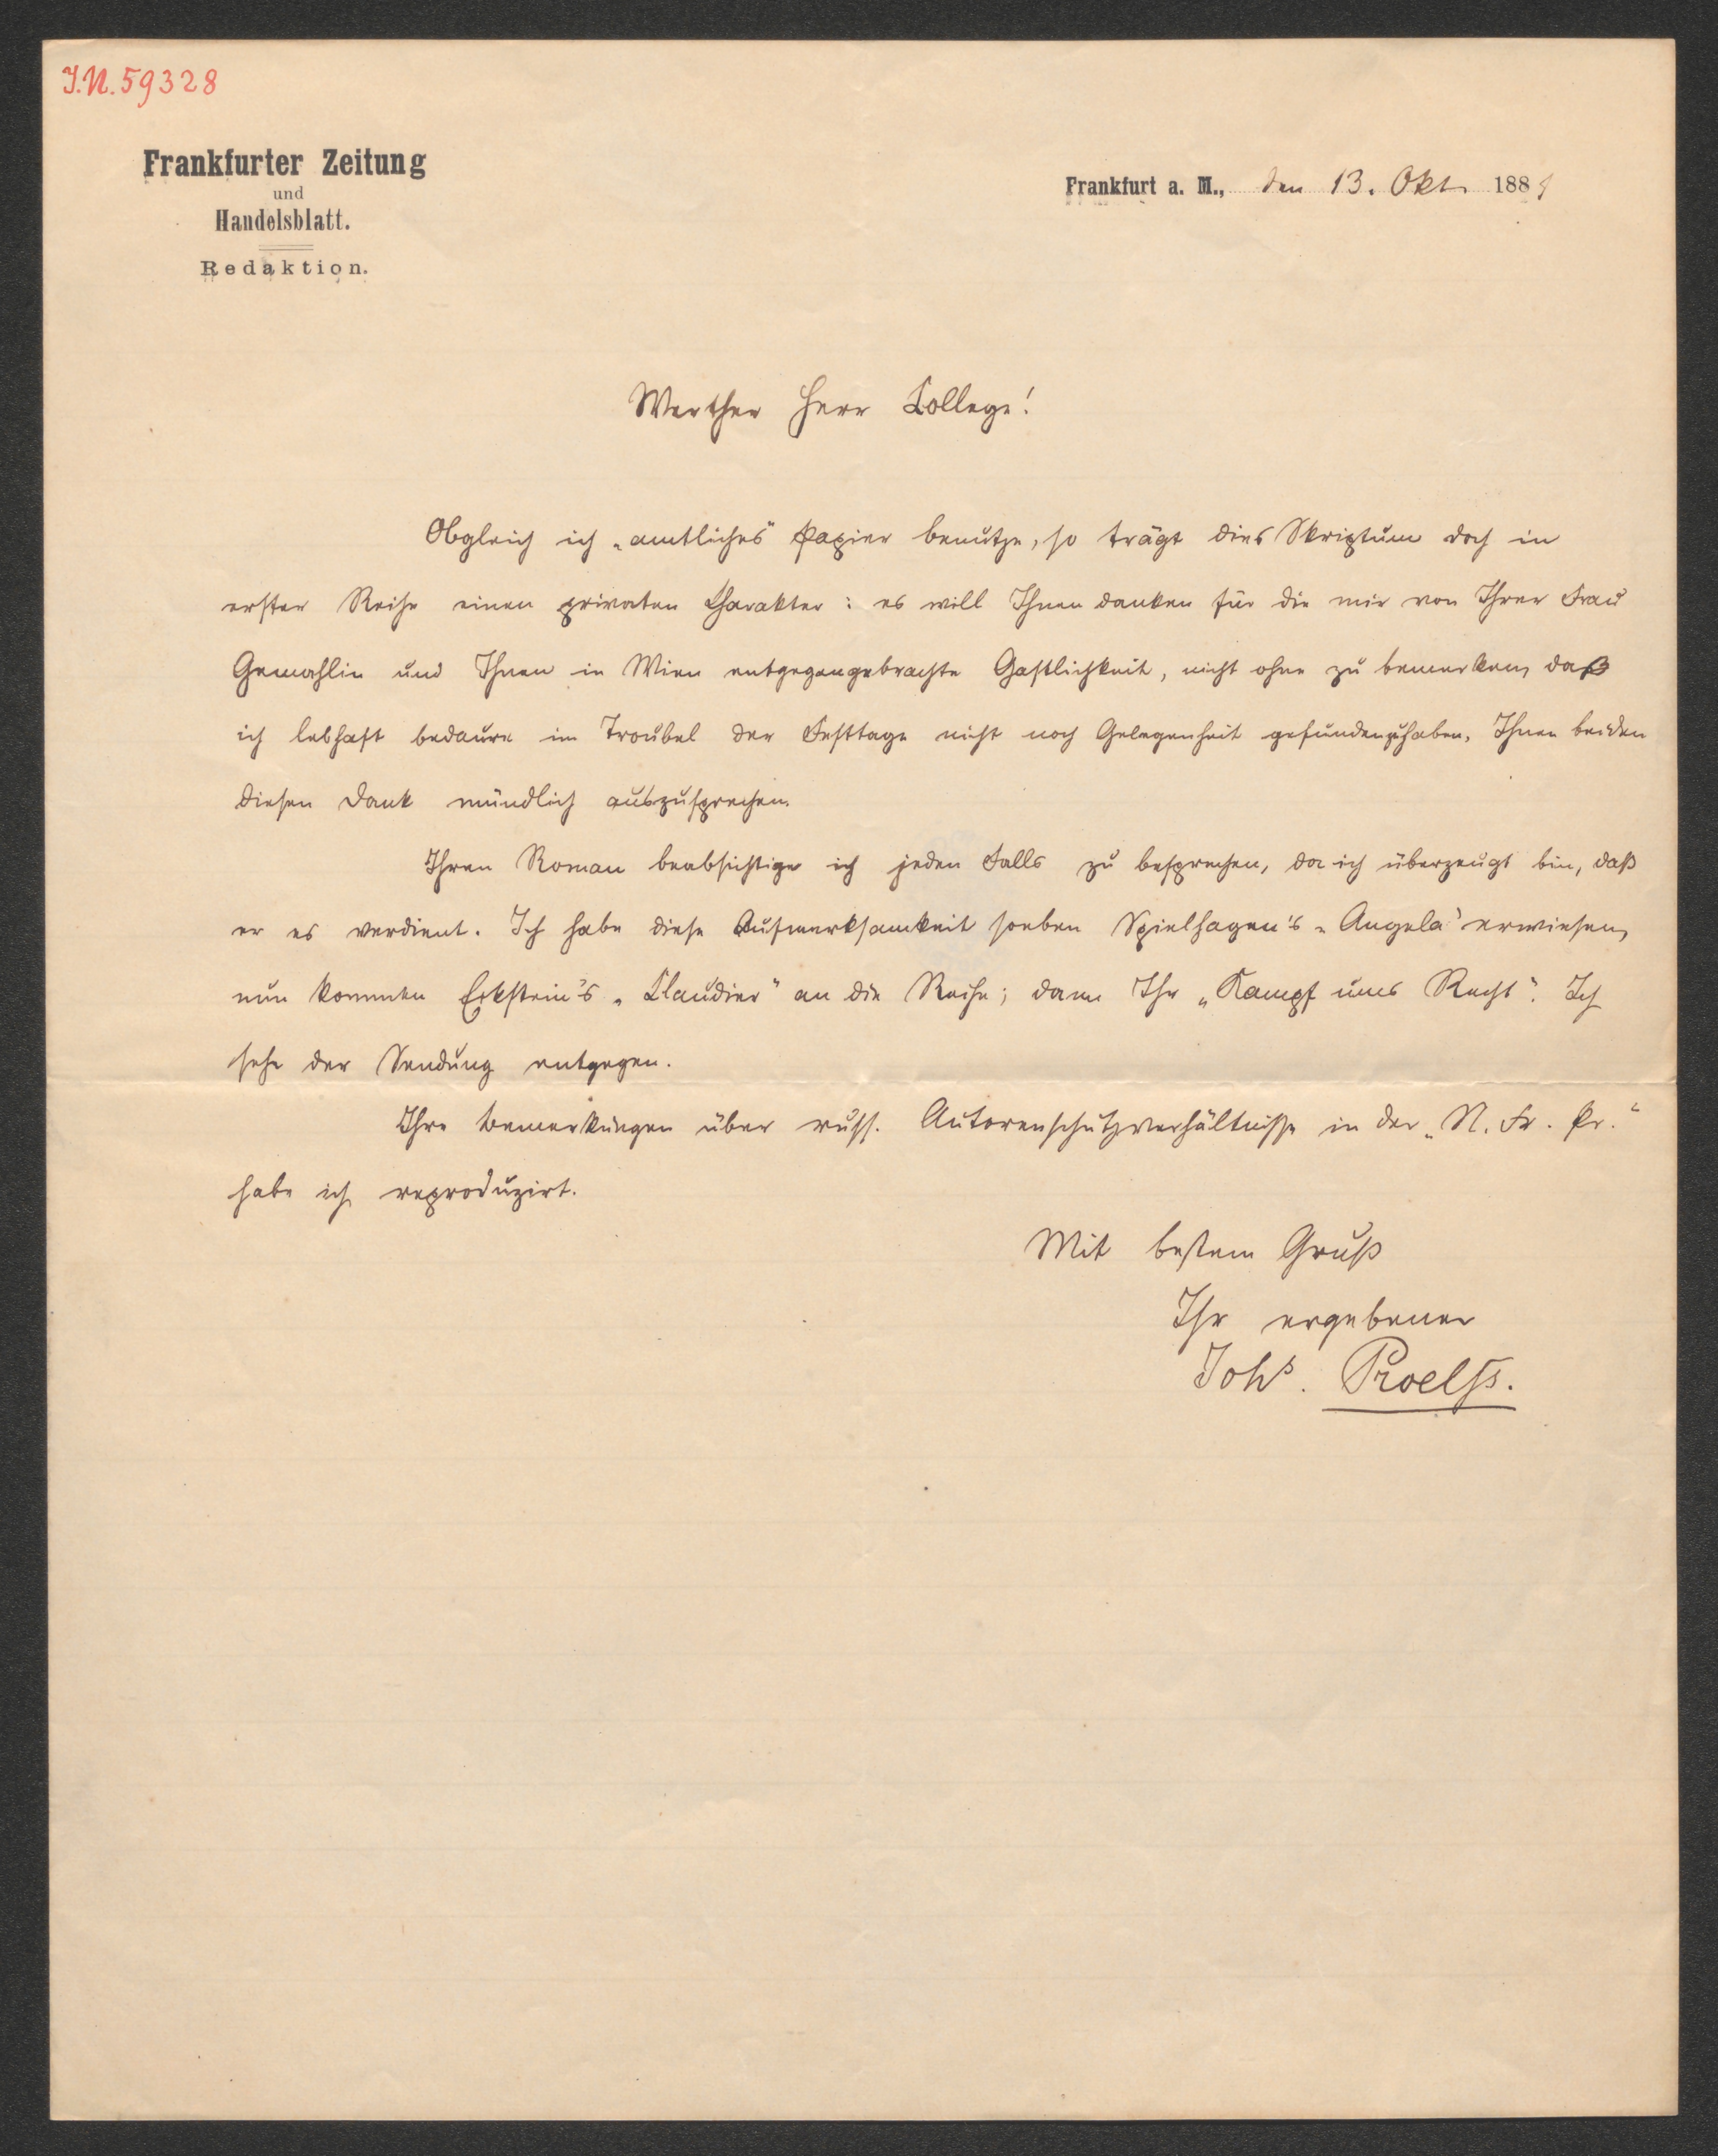 I.N. 59328
Frankfurter Zeitung
und
Handelsblatt.
Redaktion.
Frankfurt a. M., den 13. Okt. 1881
Werther Herr College!
Obgleich ich „amtliches“ Papier benutze, so trägt dies Skriptum doch in
erster Reihe einen privaten Charakter: es will Ihnen danken für die mir von Ihrer Frau
Gemahlin und Ihnen in Wien entgegengebrachte Gastlichkeit, nicht ohne zu bemerken, daß
ich lebhaft bedaure im Troubel der Festtage nicht noch Gelegenheit gefunden zu haben, Ihnen beiden
diesen Dank mündlich auszusprechen.
Ihren Roman beabsichtige ich jeden Falls zu besprechen, da ich überzeugt bin, daß
er es verdient. Ich habe diese Aufmerksamkeit soeben Spielhagen's „Angela“ erwiesen,
nun kommen Eckstein's „Claudier“ an die Reihe; dann Ihr „Kampf ums Recht“. Ich
sehe der Sendung entgegen.
Ihre Bemerkungen über russ. Autorenschutzverhältnisse in der „N. Fr. Pr.“
habe ich reproduzirt.
Mit bestem Gruß
Ihr ergebener
Johs. Proelß.